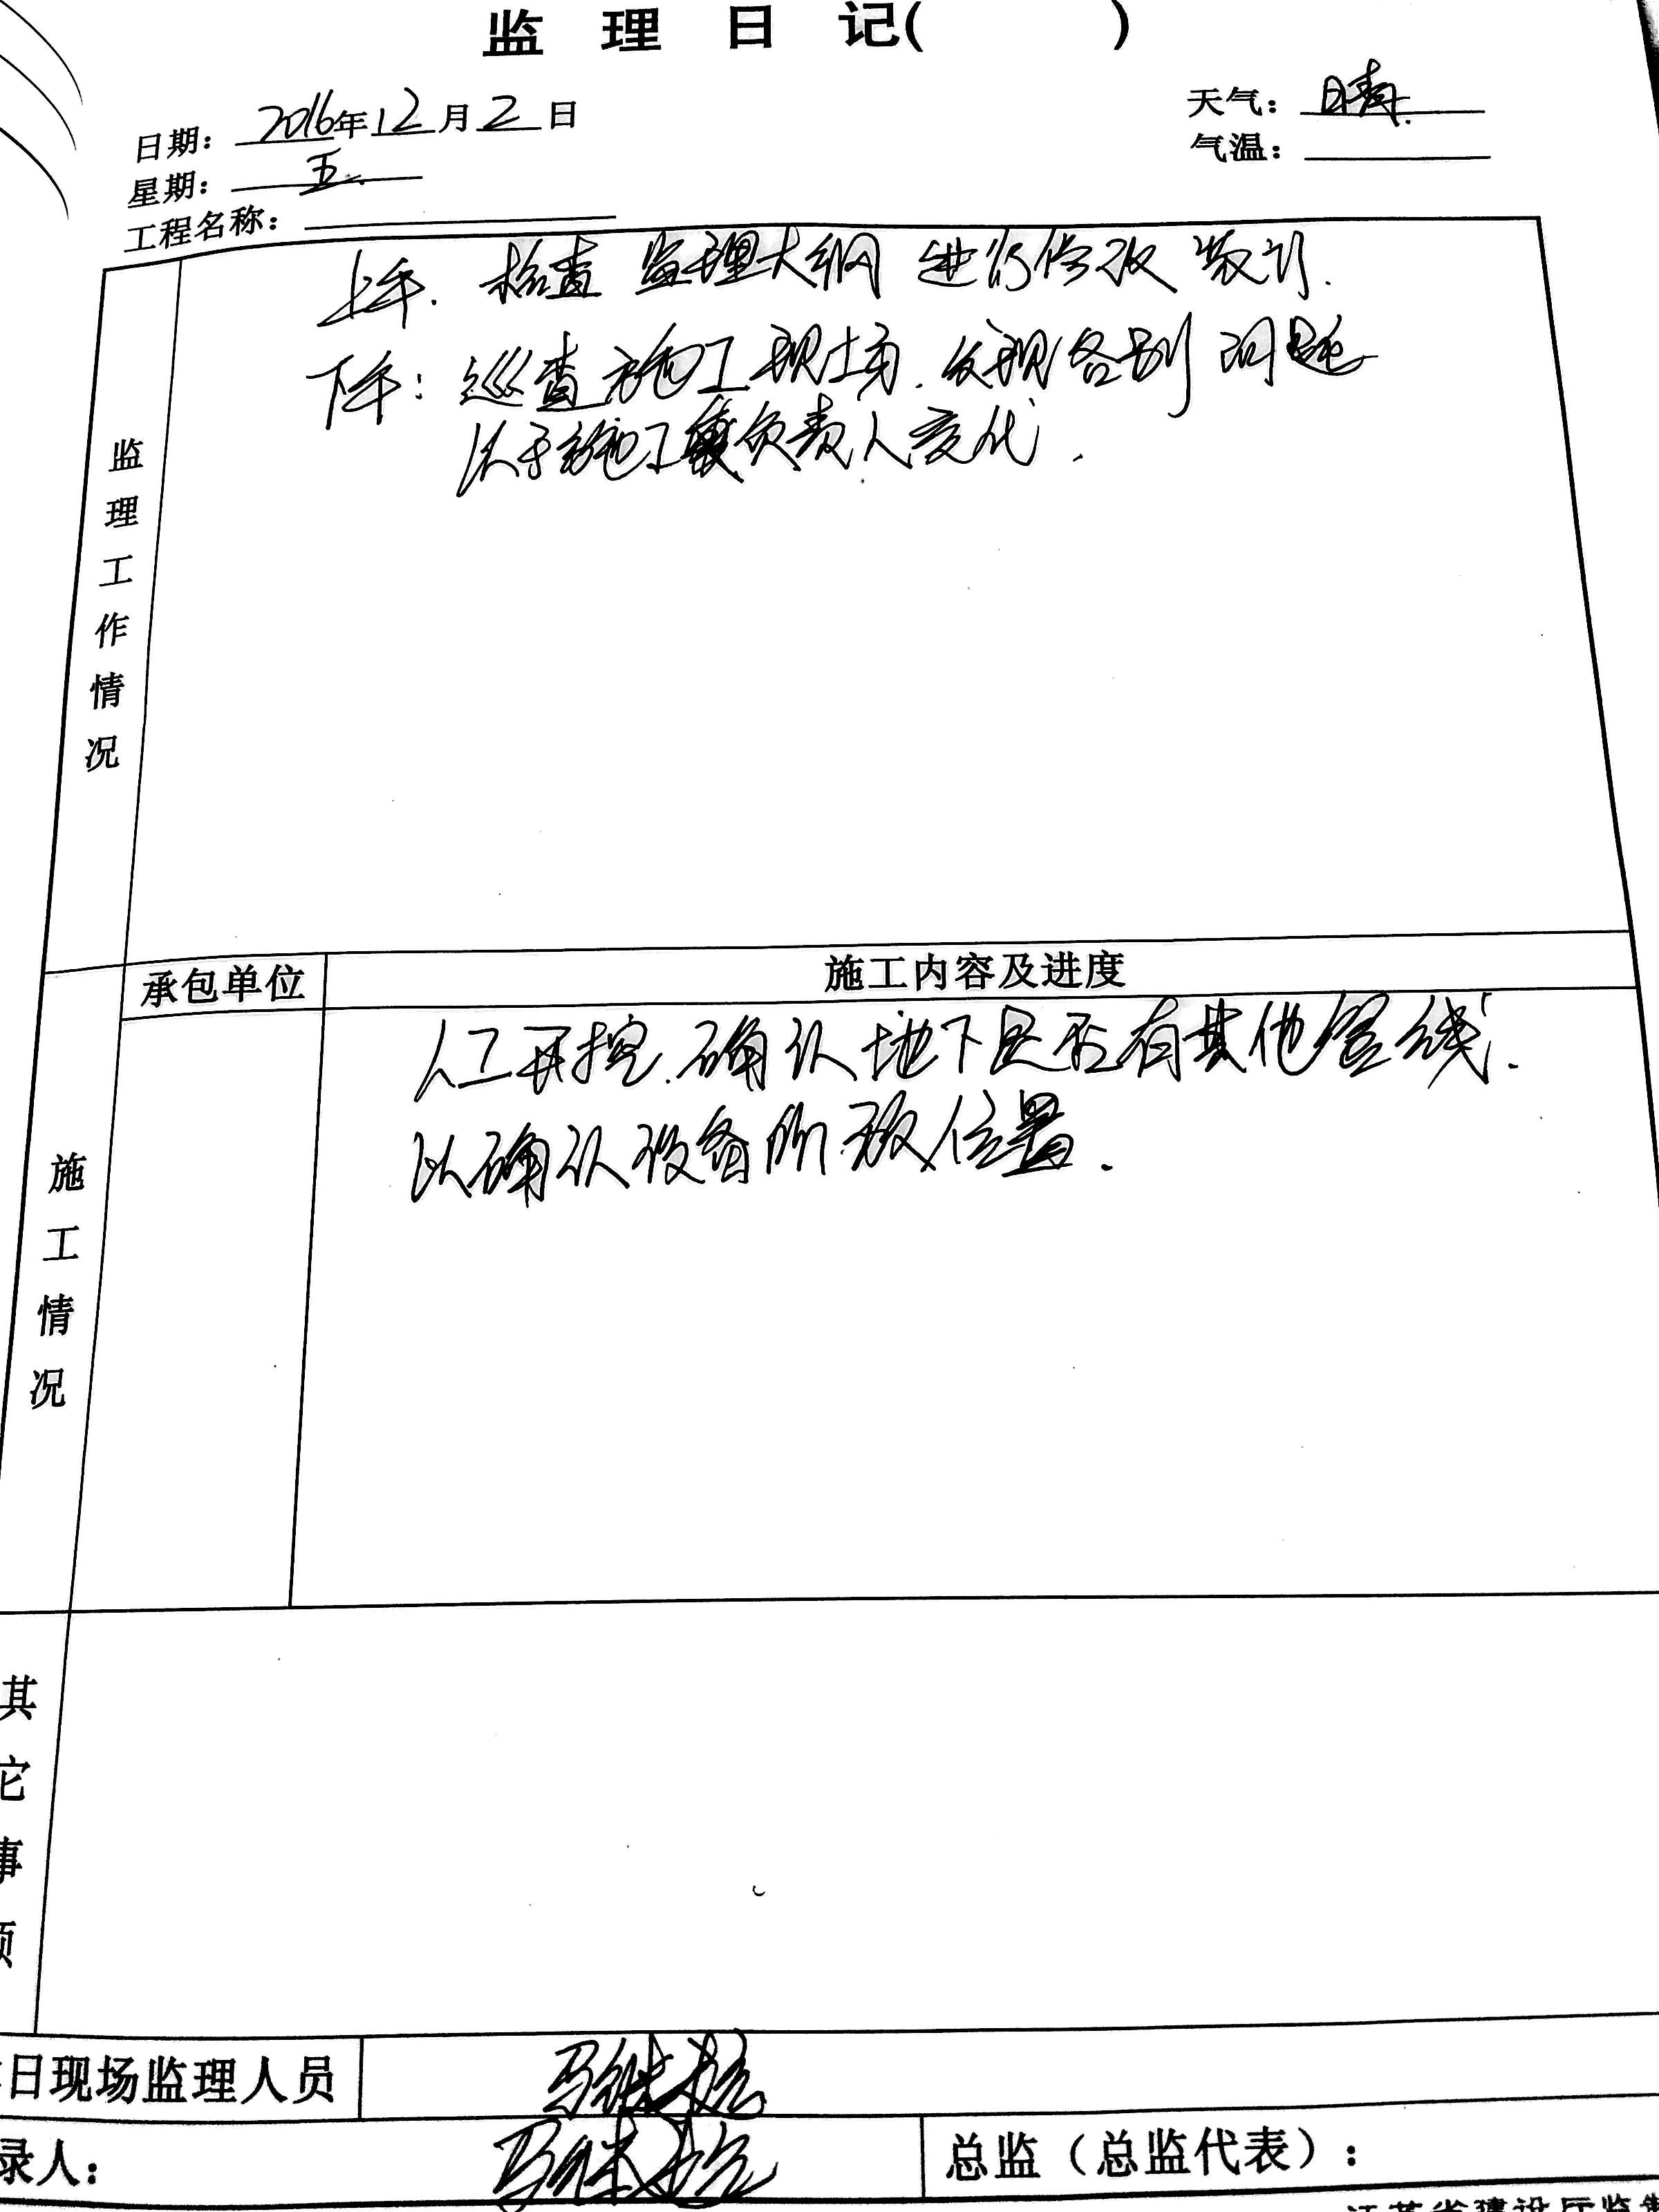 监理日记(        )
日期：2016年12月2日
天气：晴.
星期：五.
气温：
工程名称：
监理工作情况
上午. 检查 监理大纲 进行修改 装订.
下午：巡查施工现场. 发现各别问题
于施工负责人交代.
承包单位
施工内容及进度
施工情况
人工开挖. 确认地下是否有其他管线.
以确认设备所放位置.
其它事项
日现场监理人员
录人：
总监（总监代表）：
江苏省建设厅监制